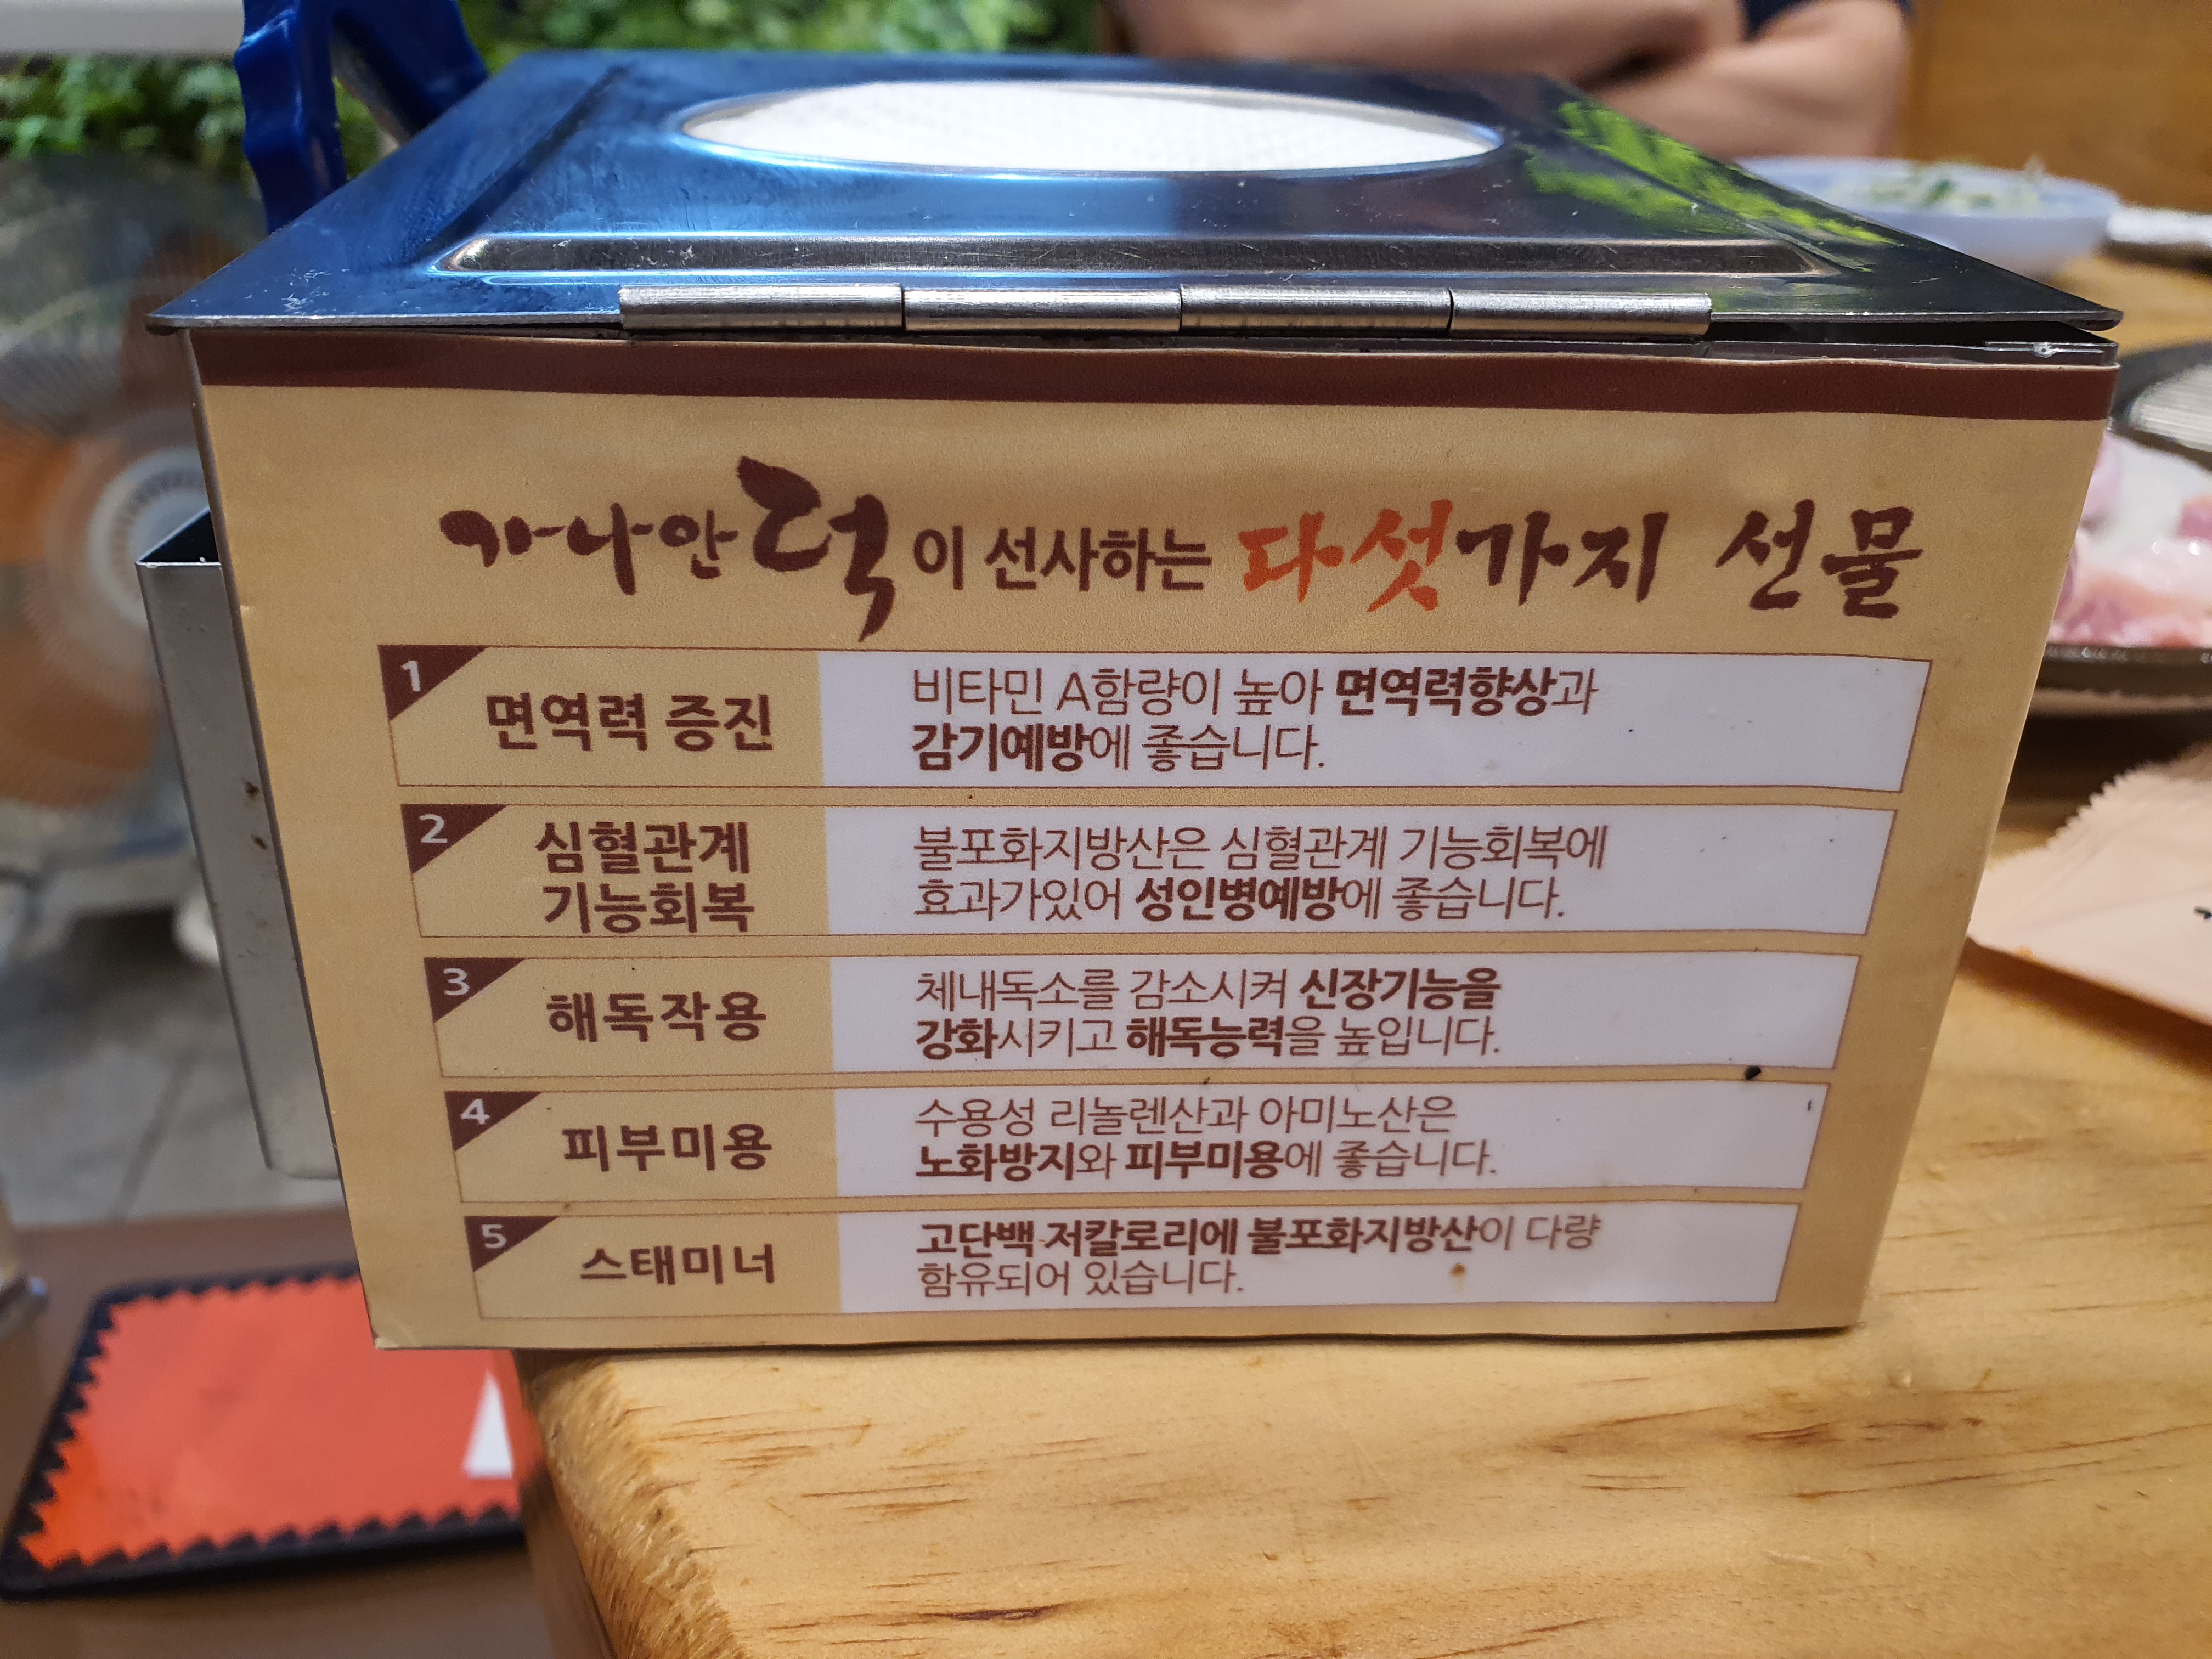 가나안덕이 선사하는 다섯가지 선물
1
면역력 증진
비타민 A함량이 높아 면역력향상과
감기예방에 좋습니다.
2
심혈관계
기능회복
불포화지방산은 심혈관계 기능회복에
효과가있어 성인병예방에 좋습니다.
3
해독작용
체내독소를 감소시켜 신장기능을
강화시키고 해독능력을 높입니다.
4
피부미용
수용성 리놀렌산과 아미노산은
노화방지와 피부미용에 좋습니다.
5
스태미너
고단백 저칼로리에 불포화지방산이 다량
함유되어 있습니다.